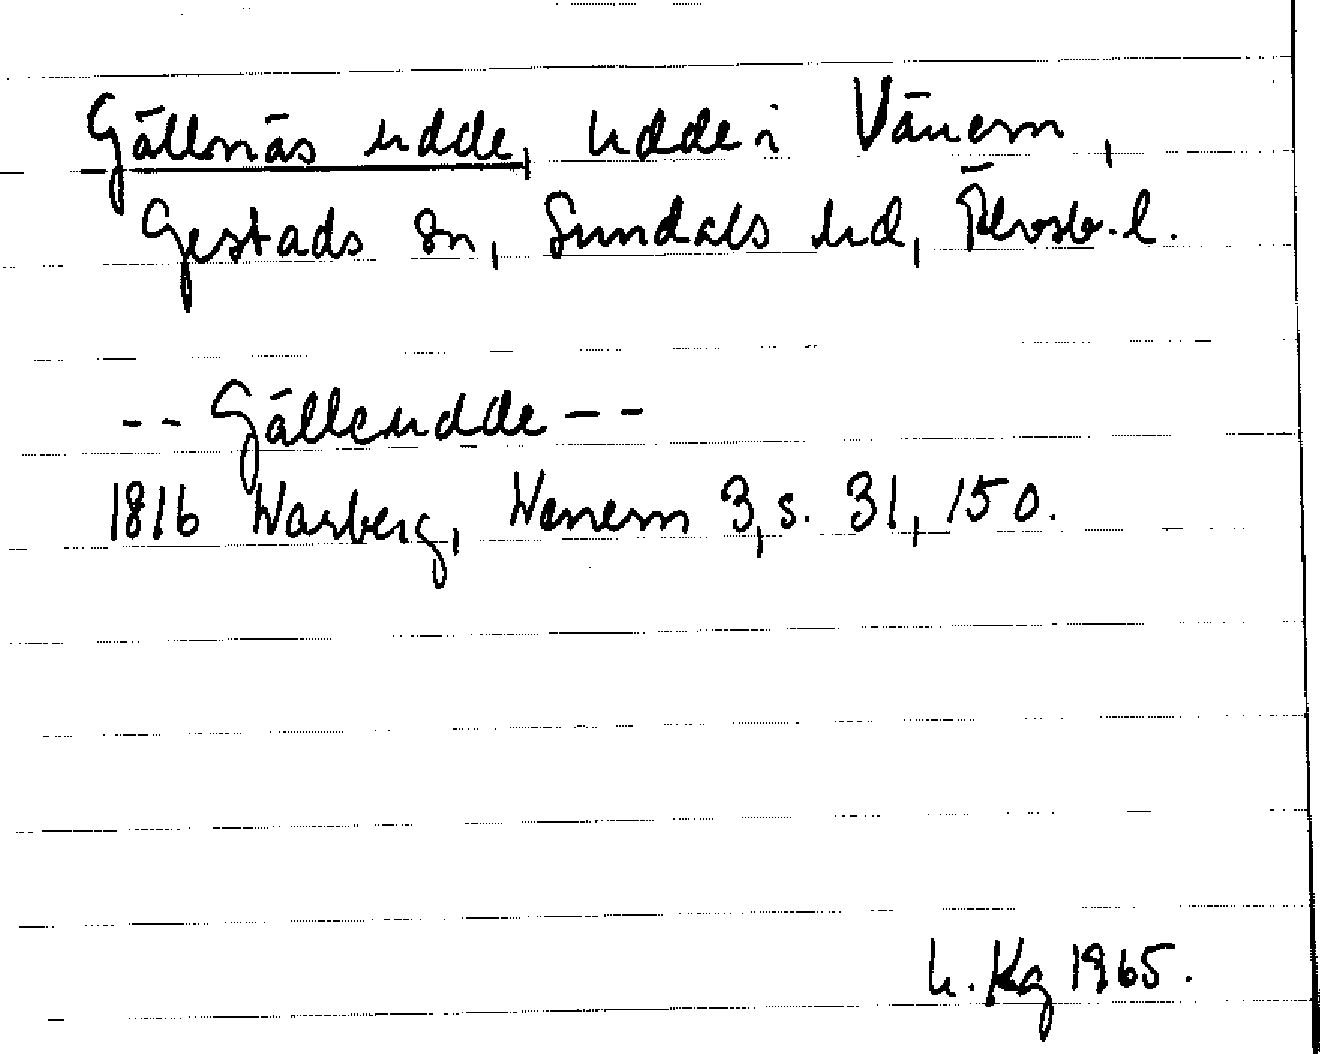 Gällnäs udde, udde i Vänern,
Gestads sn, Sundals hd, Älvsb. l.
-- Gälleudde --
1816 Warberg, Wenern 3, s. 31, 150.
h. Kg 1965.